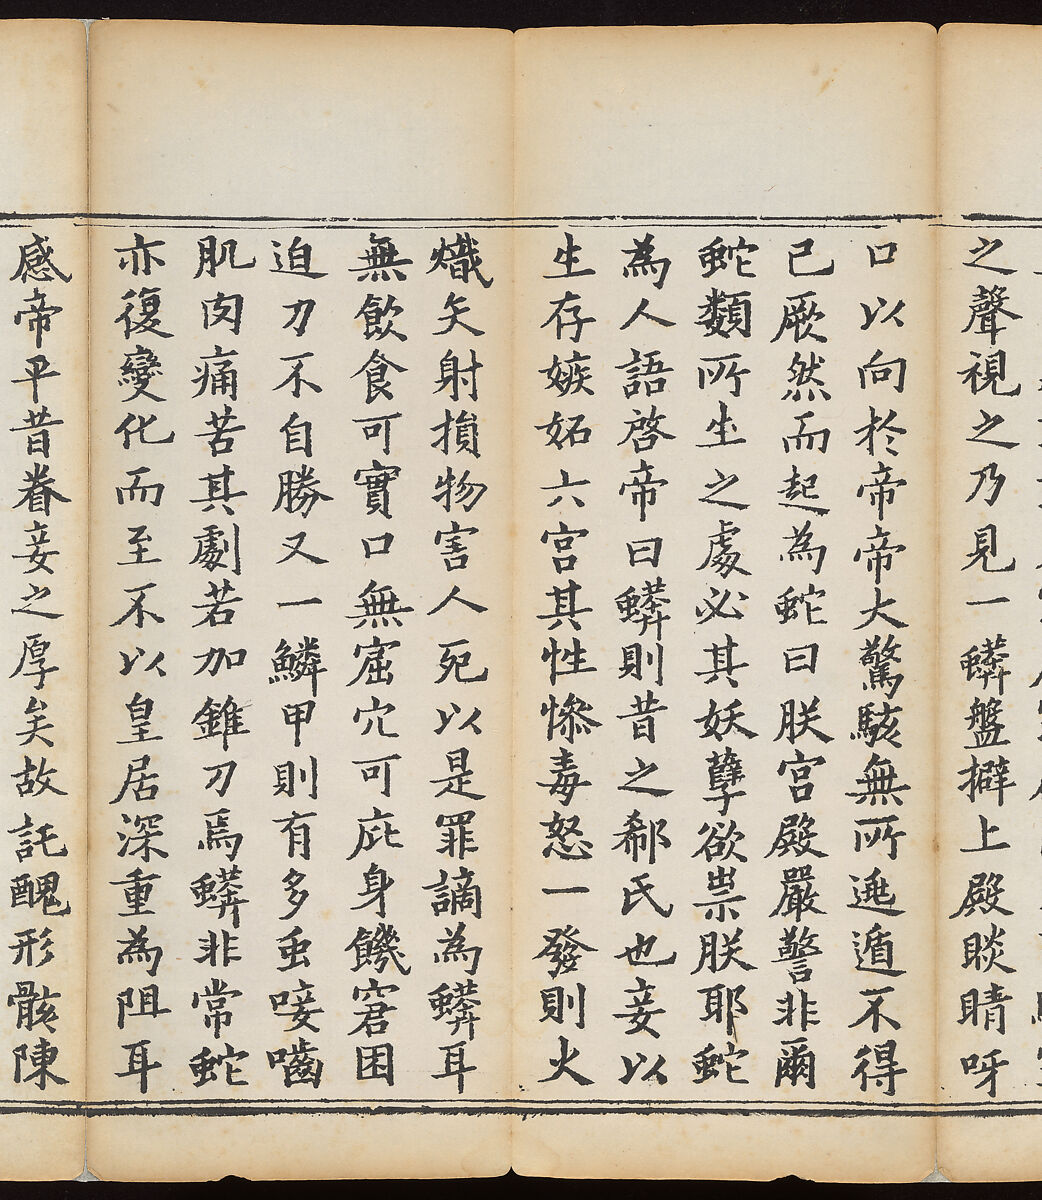 之聲視之乃見一蟒盤擗上殿睒睛呀
口以向於帝帝大驚駭無所逃遁不得
已厥然而起為蛇曰朕宮殿嚴警非爾
蛇類所生之處必其妖孽欲祟朕耶蛇
為人語啓帝曰蟒則昔之郗氏也妾以
生存嫉妬六宮其性慘毒怒一發則火
熾矢射損物害人死以是罪謫為蟒耳
無飲食可實口無窟穴可庇身饑窘困
迫力不自勝又一鱗甲則有多虫唼嚙
肌肉痛苦其劇若加錐刀焉蟒非常蛇
亦復變化而至不以皇居深重為阻耳
感帝平昔眷妾之厚矣故託醜形骸陳